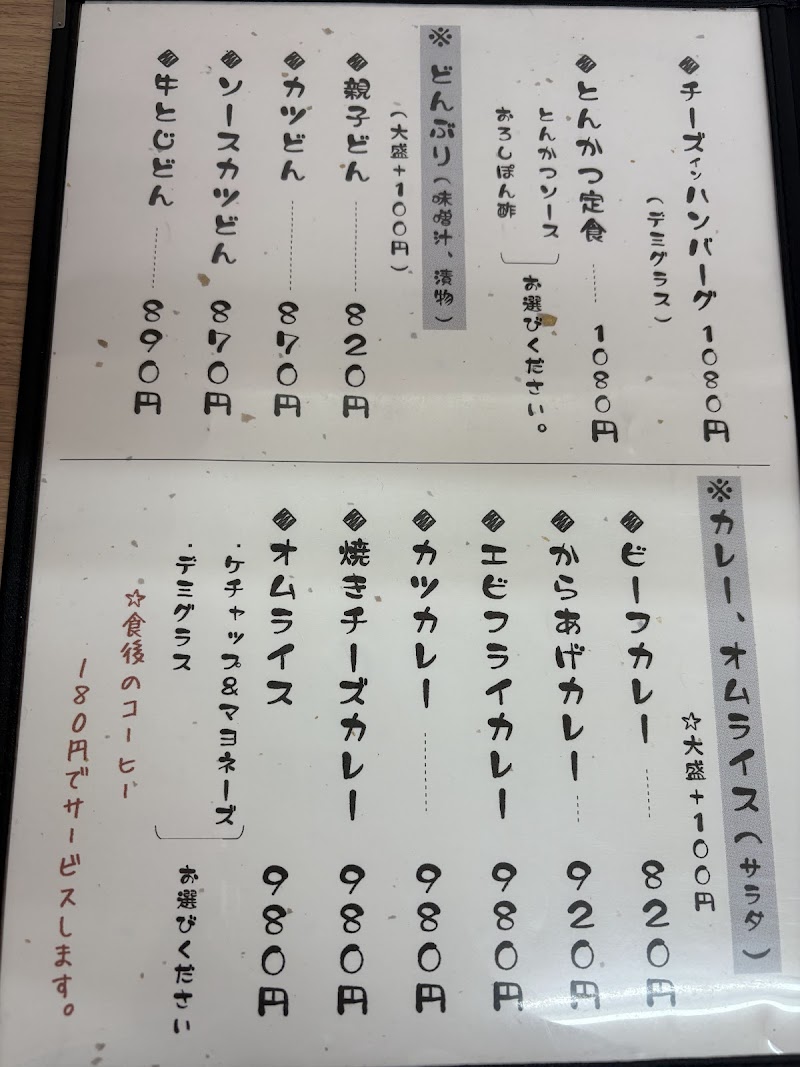 ◆チーズインハンバーグ 1080円
(デミグラス)
◆とんかつ定食 1080円
とんかつソース
おろしぽん酢
お選びください。
※どんぶり(味噌汁、漬物)
(大盛+100円)
◆親子どん 820円
◆カツどん 870円
◆ソースカツどん 870円
◆牛とじどん 890円
※カレー、オムライス(サラダ)
☆大盛+100円
◆ビーフカレー 820円
◆からあげカレー 920円
◆エビフライカレー 980円
◆カツカレー 980円
◆焼きチーズカレー 980円
◆オムライス 980円
・ケチャップ&マヨネーズ
・デミグラス
お選びください
☆食後のコーヒー
180円でサービスします。